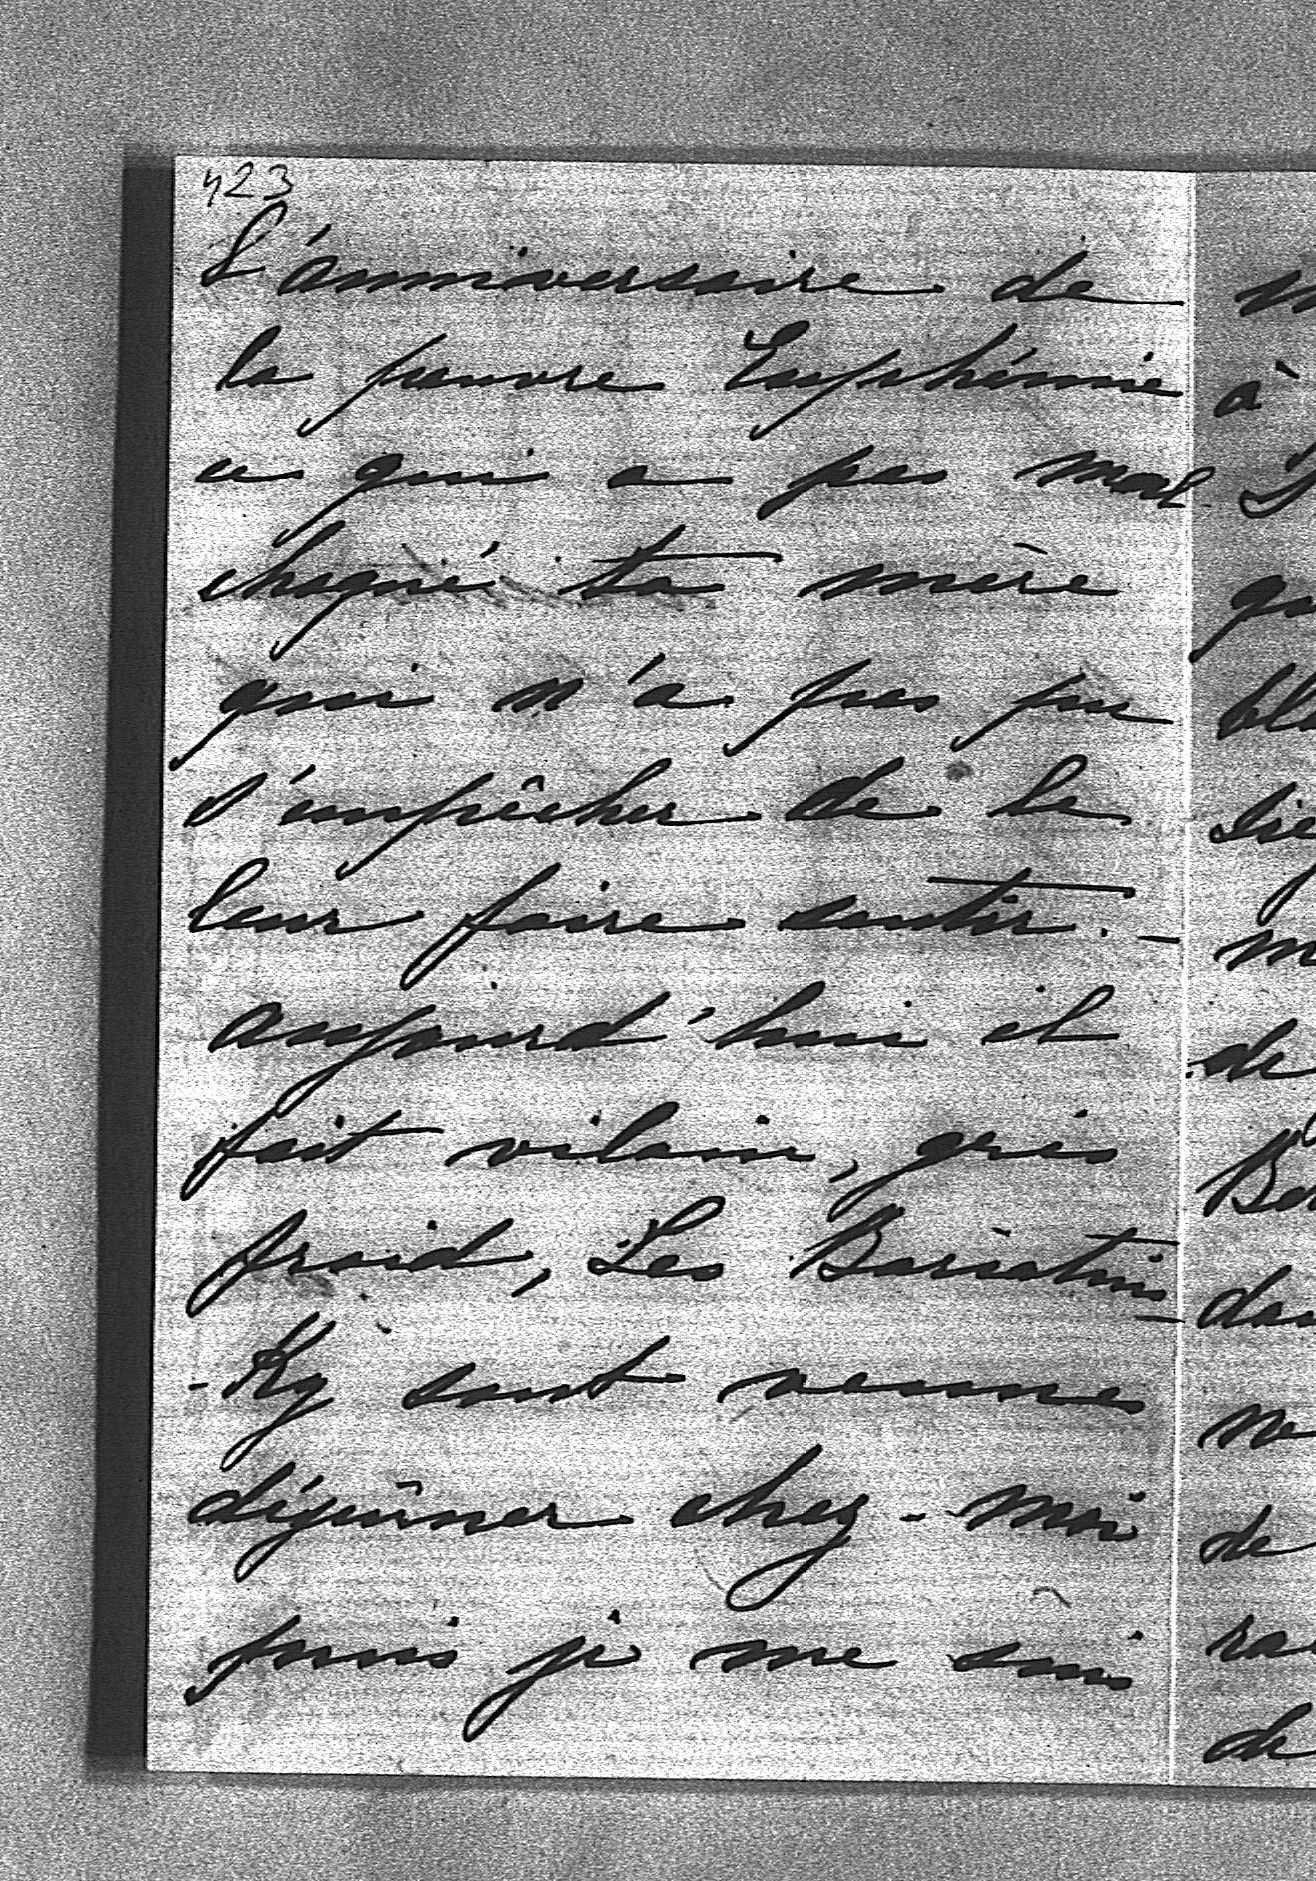 423
L'anniversaire de
la pauvre Euphémie
ce qui a pas mal
choqué ta mère
qui n'a pas pu
s'empêcher de le
leur faire sentir. –
aujourd'hui il
fait vilain, gris
froid, Les Bariatins–
-Ky sont venues
déjeûner chez-moi
puis je me suis
à
de
de